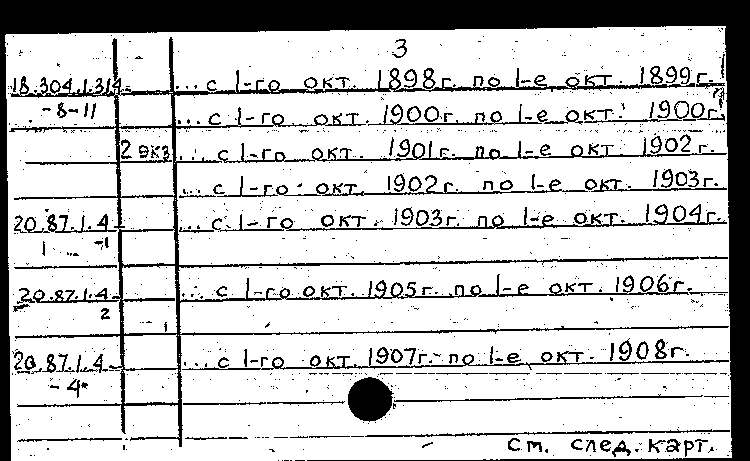 3
18.304.1.314- ... с 1-го окт. 1898г. по 1-е окт. 1899г.
-8-11 ... с 1-го окт. 1900г. по 1-е окт. 1900г.
2 экз ... с 1-го окт. 1901г. по 1-е окт. 1902г.
... с 1-го окт. 1902г. по 1-е окт. 1903г.
20.87.1.4- ... с 1-го окт. 1903г. по 1-е окт. 1904г.
-1
20.87.1.4- ... с 1-го окт. 1905г. по 1-е окт. 1906г.
2
20.87.1.4- ... с 1-го окт. 1907г. по 1-е окт. 1908г.
-4
См. след. карт.